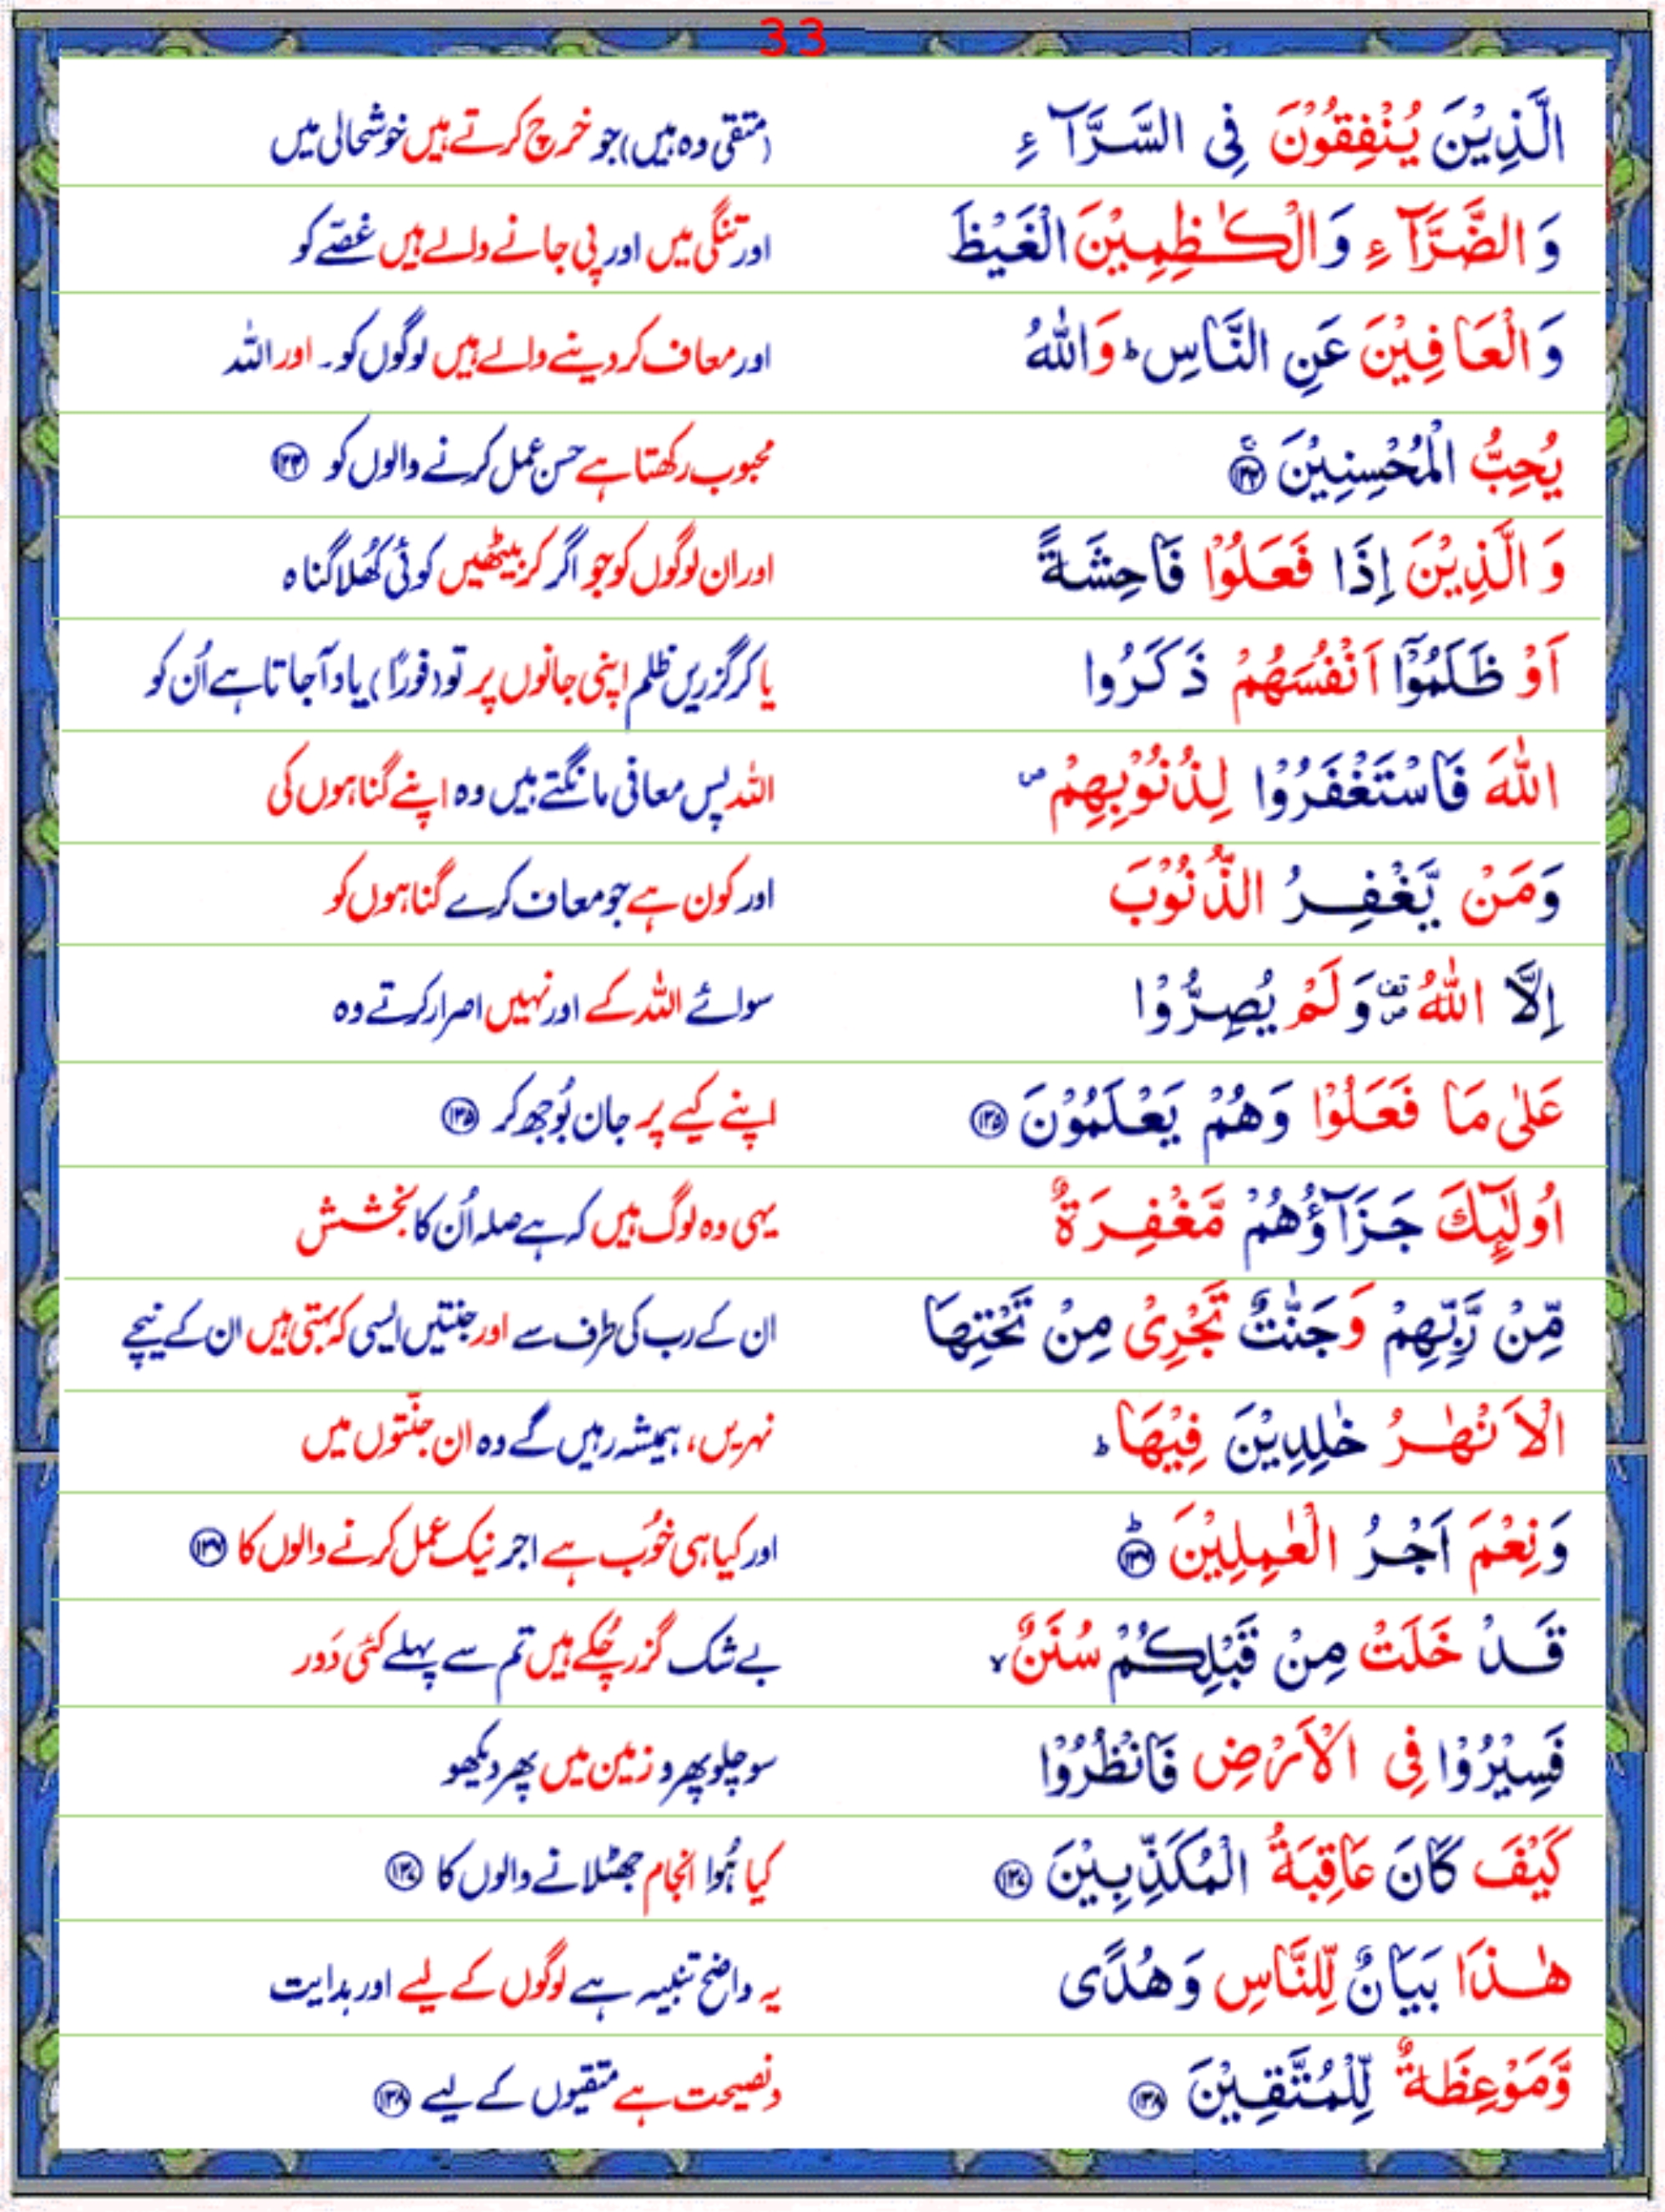 33
الَّذِيْنَ يُنْفِقُوْنَ فِى السَّرَّآءِ (متقی وہ ہیں) جو خرچ کرتے ہیں خوشحالی میں
وَالضَّرَّآءِ وَالْكٰظِمِيْنَ الْغَيْظَ اور تنگی میں اور پی جانے والے ہیں غصّے کو
وَالْعَافِيْنَ عَنِ النَّاسِ ؕ وَاللّٰهُ اور معاف کر دینے والے ہیں لوگوں کو۔ اور اللہ
يُحِبُّ الْمُحْسِنِيْنَ ۚ‏ ﴿۱۳۴﴾ محبوب رکھتا ہے حسن عمل کرنے والوں کو ﴿۱۳۴﴾
وَالَّذِيْنَ اِذَا فَعَلُوْا فَاحِشَةً اور ان لوگوں کو جو اگر کر بیٹھیں کوئی کُھلا گناہ
اَوْ ظَلَمُوْۤا اَنْفُسَهُمْ ذَكَرُوا یا کر گزریں ظلم اپنی جانوں پر تو (فورًا) یاد آجاتا ہے اُن کو
اللّٰهَ فَاسْتَغْفَرُوْا لِذُنُوْبِهِمْ ص اللہ پس معافی مانگتے ہیں وہ اپنے گناہوں کی
وَمَنْ يَّغْفِرُ الذُّنُوْبَ اور کون ہے جو معاف کرے گناہوں کو
اِلَّا اللّٰهُ وَلَمْ يُصِرُّوْا سوائے اللہ کے اور نہیں اصرار کرتے وہ
عَلٰى مَا فَعَلُوْا وَهُمْ يَعْلَمُوْنَ ﴿۱۳۵﴾ اپنے کیے پر جان بُوجھ کر ﴿۱۳۵﴾
اُولٰٓئِكَ جَزَآؤُهُمْ مَّغْفِرَةٌ یہی وہ لوگ ہیں کہ ہے صلہ اُن کا بخشش
مِّنْ رَّبِّهِمْ وَجَنّٰتٌ تَجْرِىْ مِنْ تَحْتِهَا ان کے رب کی طرف سے اور جنتیں ایسی کہ بہتی ہیں ان کے نیچے
الْاَنْهٰرُ خٰلِدِيْنَ فِيْهَا ؕ نہریں، ہمیشہ رہیں گے وہ ان جنّتوں میں
وَنِعْمَ اَجْرُ الْعٰمِلِيْنَ ؕ ﴿۱۳۶﴾ اور کیا ہی خُوب ہے اجر نیک عمل کرنے والوں کا ﴿۱۳۶﴾
قَدْ خَلَتْ مِنْ قَبْلِكُمْ سُنَنٌ ۙ بے شک گزر چُکے ہیں تم سے پہلے کئی دَور
فَسِيْرُوْا فِى الْاَرْضِ فَانْظُرُوْا سو چلو پھرو زمین میں پھر دیکھو
كَيْفَ كَانَ عَاقِبَةُ الْمُكَذِّبِيْنَ ﴿۱۳۷﴾ کیا ہُوا انجام جھٹلانے والوں کا ﴿۱۳۷﴾
هٰذَا بَيَانٌ لِّلنَّاسِ وَهُدًى یہ واضح تنبیہ ہے لوگوں کے لیے اور ہدایت
وَّمَوْعِظَةٌ لِّلْمُتَّقِيْنَ ﴿۱۳۸﴾ ونصیحت ہے متقیوں کے لیے ﴿۱۳۸﴾